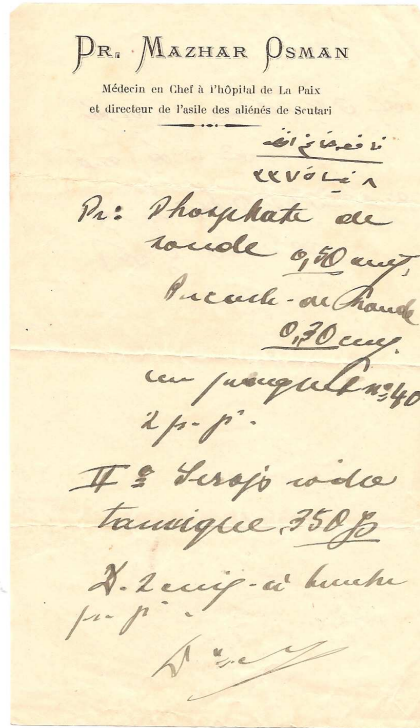 DR. MAZHAR OSMAN
Médecin en Chef à l'hôpital de La Paix
et directeur de l'asile des aliénés de Scutari
٨ نيسان ٣٣٧
Pr: Phosphate de
soude 0,50 cmg.
de chaude
0,30 cmg.
un paquet nº 40
2 p. j.
IIº Sirop iodo
tannique 350 g
D. 2 cuil. à bouche
p. j.